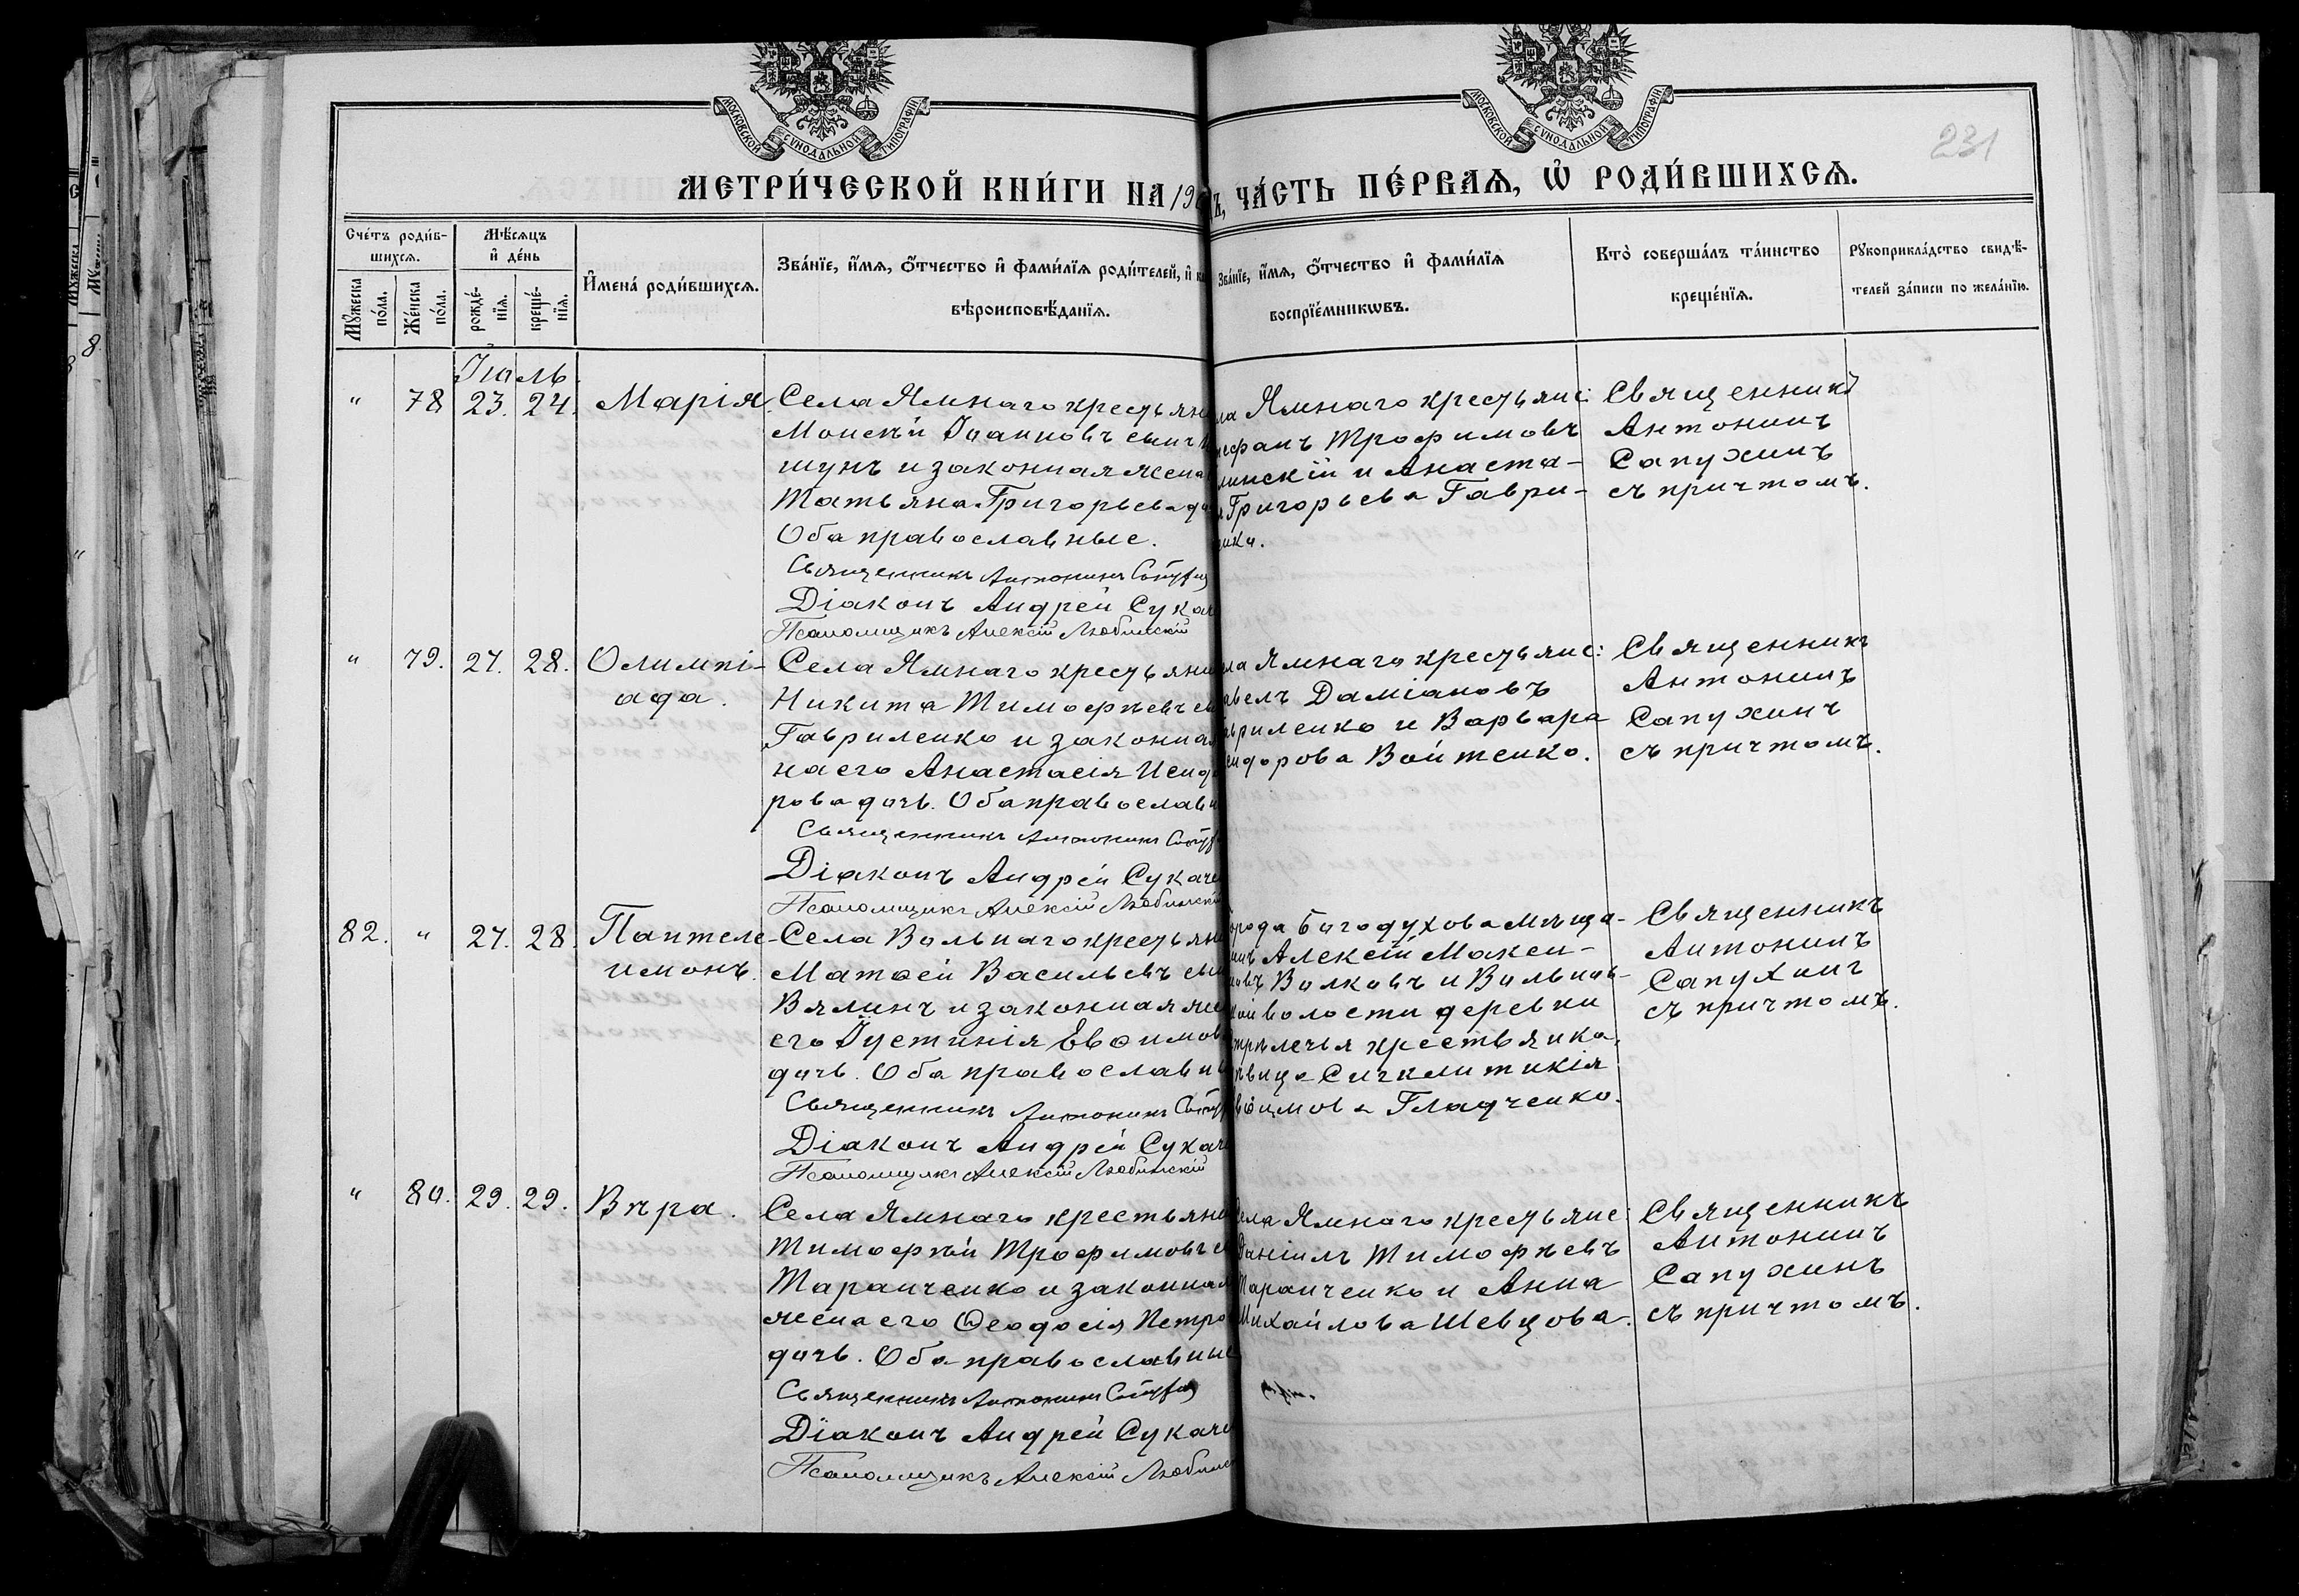 МОСКОВСКОЙ СѴНОДАЛЬНОЙ ТИПОГРАФІИ
МОСКОВСКОЙ СѴНОДАЛЬНОЙ ТИПОГРАФІИ
231
МЕТРИ́ЧЕСКОЙ КНИ́ГИ НА 19
ЧА́СТЬ ПЕ́РВАѦ, Ѡ҆ РОДИ́ВШИХСѦ.
Сче́тъ роди́в-
шихсѧ.
Мꙋ́жеска по́ла.
Же́нска по́ла.
Мѣ́сѧцъ
и҆ де́нь
рожде́-
нїѧ.
креще́-
нїѧ.
И҆мена̀ роди́вшихсѧ.
Зва́нїе, и҆́мѧ, ѻ҆́тчество и҆ фами́лїѧ роди́телей, и҆
вѣроисповѣ́данїѧ.
Зва́нїе, и҆́мѧ, ѻ҆́тчество и҆ фами́лїѧ
воспрїе́мникѡвъ.
Кто̀ соверша́лъ та́инство
креще́нїѧ.
Рꙋкоприкла́дство свидѣ́-
телей за́писи по жела́нїю.
Іюль.
" 78 23. 24. Марія.
Села Ямнаго крестьян
Моисей Іоанновъ сынъ
шунъ и законная жена
Татьяна Григорьева до
Оба православные.
Священникъ Антонинъ Сапухин
Діаконъ Андрей Сукач
Псаломщикъ Алексій Любинскій
ла Ямнаго крестьянс:
ефанъ Трофимовъ
инскій и Анаста-
Григорьева Гаври-
нко.
Священникъ
Антонинъ
Сапухинъ
съ причтомъ.
" 79. 27. 28. Олимпі-
ада.
Села Ямнаго крестьяни
Никита Тимофѣевъ сы
Гавриленко и законная
на его Анастасія Исидо
рова дочь. Оба православн
Священникъ Антонинъ Сапух
Діаконъ Андрей Сукаче
Псаломщикъ Алексій Любинскі
ла Ямнаго крестьянс:
авелъ Даміановъ
вриленко и Варвара
сидорова Войтенко.
Священникъ
Антонинъ
Сапухинъ
съ причтомъ.
82. " 27. 28. Пантеле-
имонъ.
Села Вольнаго крестьяни
Матѳей Васильевъ сын
Вялинъ и законная же
его Іустинія Евѳимов
дочь. Оба православны
Священникъ Антонинъ Сапух
Діаконъ Андрей Сукач
Псаломщикъ Алексій Любинскій
орода Богодухова мѣща-
инъ Алексій Макси-
овъ Волковъ и Вольнов-
кой волости деревни
трѣлечья крестьянка,
ѣвица Сигклитикія
вѳимова Гладченко.
Священникъ
Антонинъ
Сапухинъ
съ причтомъ.
" 80. 29. 29. Вѣра.
Села Ямнаго крестьяни
Тимофѣй Трофимовъ с
Таранченко и законная
жена его Ѳеодосія Петро
дочь. Оба православные
Священникъ Антонинъ Сапухин
Діаконъ Андрей Сукаче
Псаломщикъ Алексій Любинс
Села Ямнаго крестьянс:
Даніилъ Тимофѣевъ
Таранченко и Анна
Михайлова Шевцова.
Священникъ
Антонинъ
Сапухинъ
съ причтомъ.